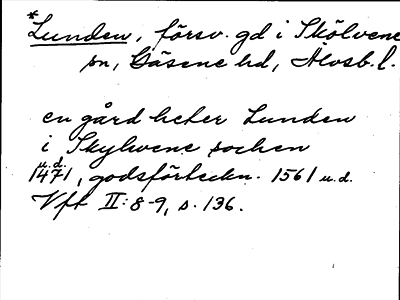 *Lunden, försv. gd i Skölvene
sn, Gäsene hd, Älvsb. l.
en gård heter Lunden
i Skylvene sochen
1471 u.d., godsförteckn. 1561 u.d.
Vft II: 8-9, s. 136.